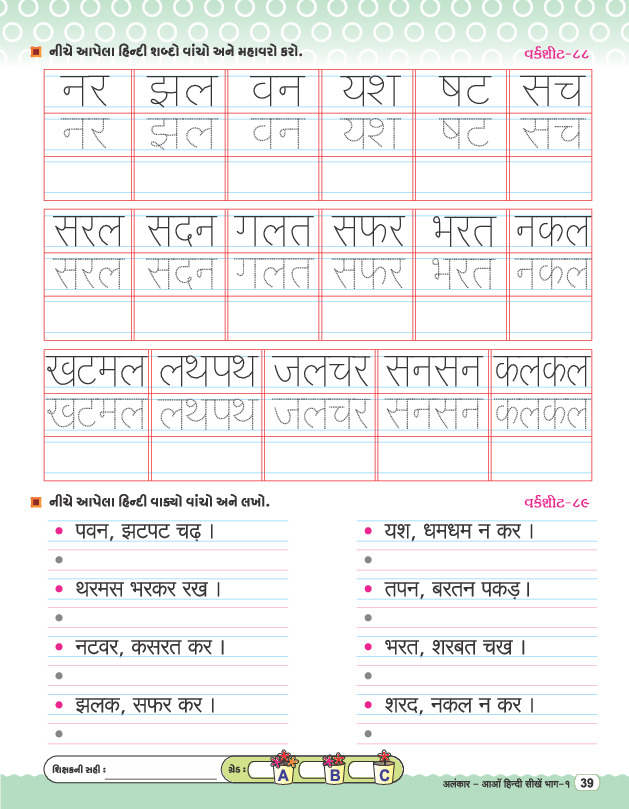 નીચે આપેલા હિન્દી શબ્દો વાંચો અને મહાવરો કરો.
વર્કશીટ-૮૮
नर झल वन यश षट सच
नर झल वन यश षट सच
सरल सदन गलत सफर भरत नकल
सरल सदन गलत सफर भरत नकल
खटमल लथपथ जलचर सनसन कलकल
खटमल लथपथ जलचर सनसन कलकल
નીચે આપેલા હિન્દી વાક્યો વાંચો અને લખો.
વર્કશીટ-૮૯
• पवन, झटपट चढ़ ।
• यश, धमधम न कर ।
• थरमस भरकर रख ।
• तपन, बरतन पकड़ ।
• नटवर, कसरत कर ।
• भरत, शरबत चख ।
• झलक, सफर कर ।
• शरद, नकल न कर ।
શિક્ષકની સહી :
ગ્રેડ : A B C
अलंकार – आओं हिन्दी सीखें भाग-१ 39